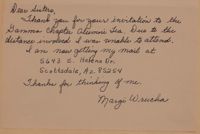 Dear Sisters,
Thank you for your invitation to the
Gamma Chapter Alumni Tea. Due to the
distance involved I was unable to attend.
I am now getting my mail at
5643 E. Helena Dr.
Scottsdale, Az. 85254
Thanks for thinking of me.
Margo